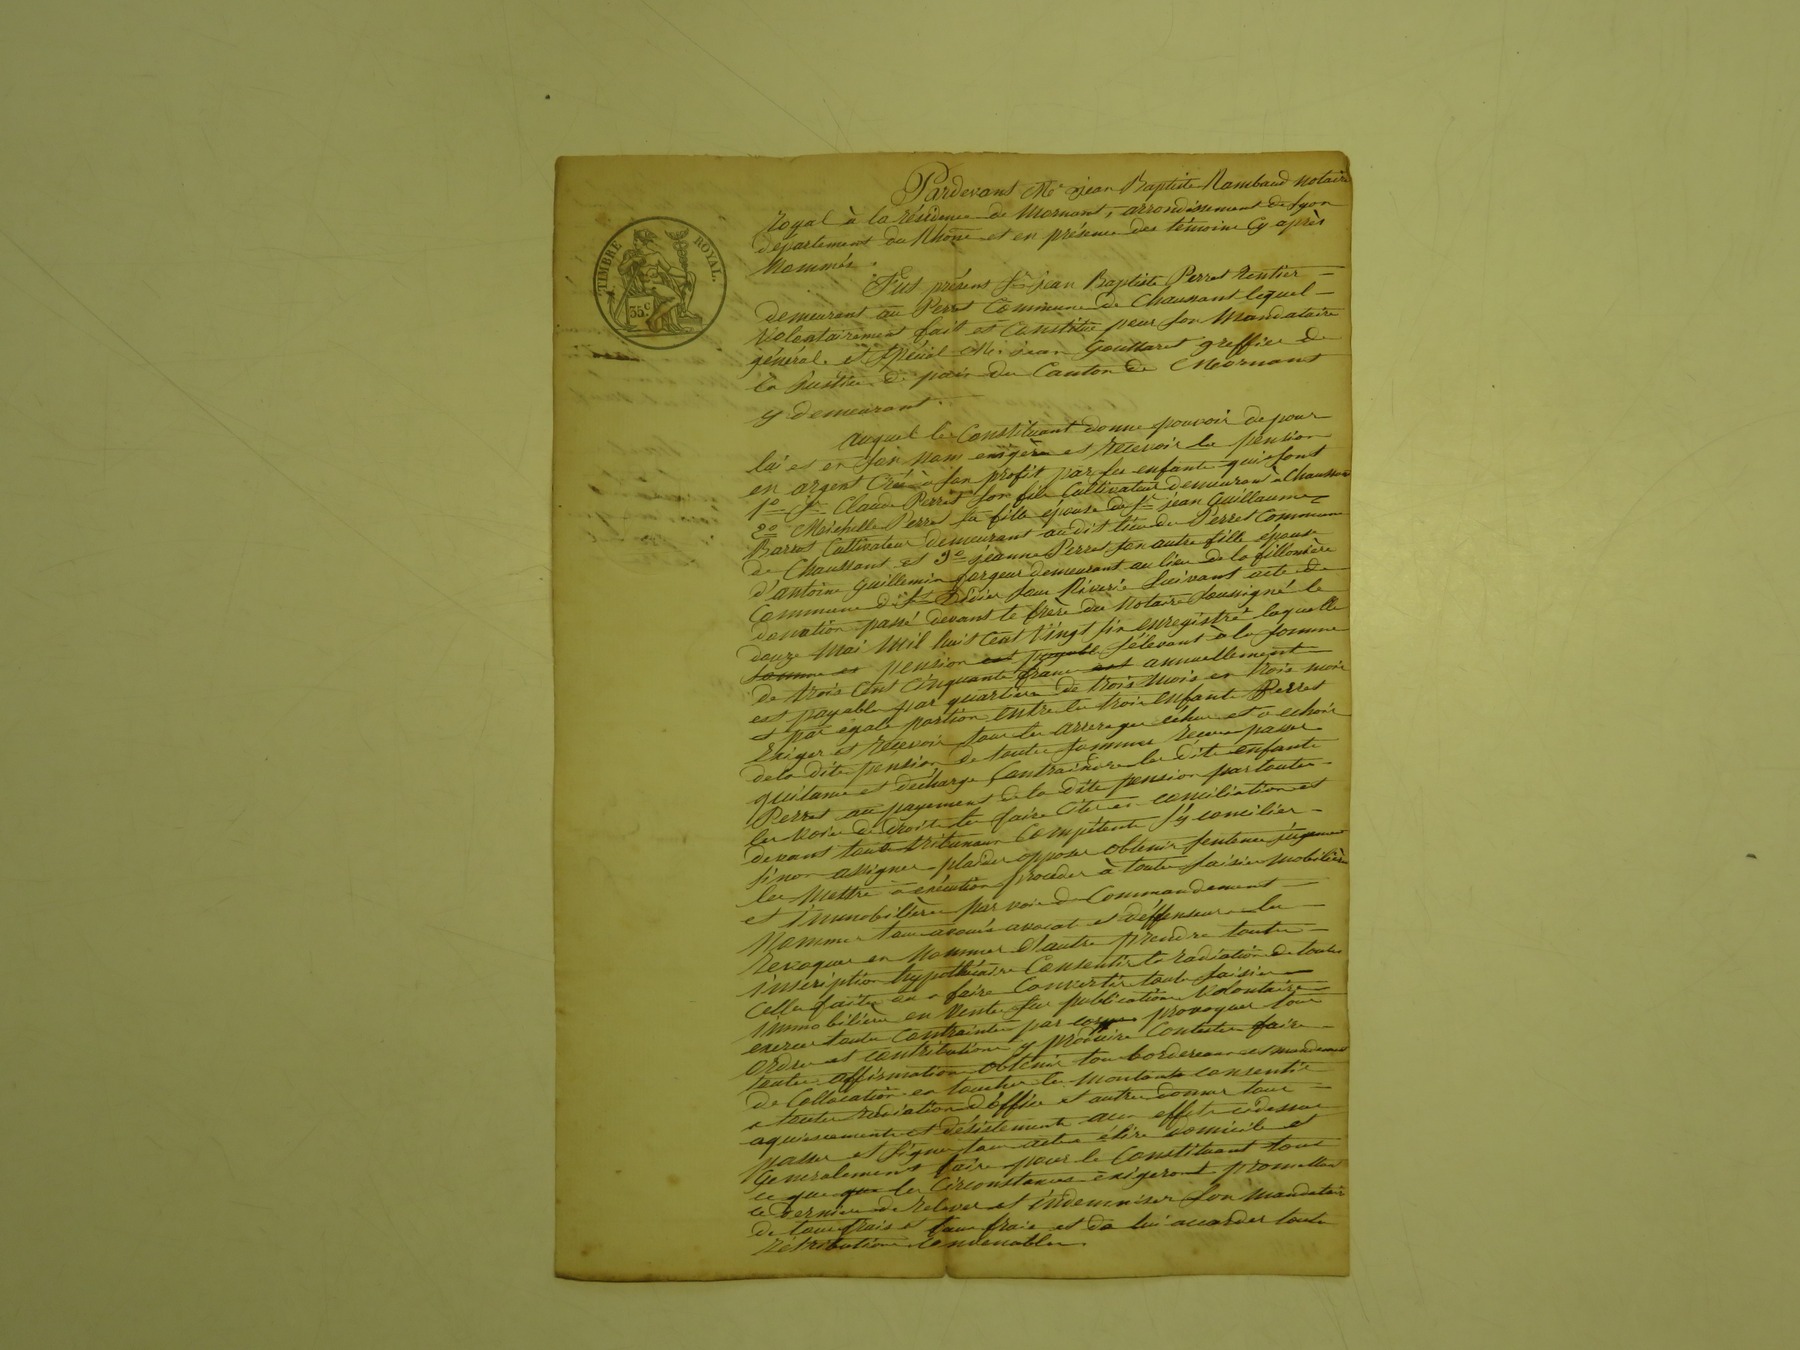 TIMBRE ROYAL.
35.c
Pardevant Me jean Baptiste Rambaud notaire
royal à la résidence de Mornant, arrondissement de Lyon
département du Rhône et en présence des témoins Cy après
Nommés.
Fut présent Sr jean Baptiste Perret Rentier
demeurant au Perret Commune de Chaussant lequel
volontairement fait et Constitue pour Son Mandataire
général et Spécial Mr jean greffier de
la Justice de paix du Canton de Mornant
y demeurant.
auquel le Constituant donne pouvoir de pour
lui et en Son Nom exigère et recevoir la pension
en argent Créé à Son profit par ses enfants qui sont
1o Sr Claude Perret Son fils Cultivateur demeurant à Chaussant
2o Perret Sa fille épouse de Sr jean Guillaume
Barret Cultivateur demeurant au dit lieu du Perret Commune
de Chaussant et 3o jeanne Perret Son autre fille épouse
d'antoine Guillemin forgeur demeurant au lieu de la fillonière
Commune de St Didier Sous Riverie Suivant acte de
donation passé devant le frère du Notaire Soussigné le
douze Mai Mil huit Cent Vingt Six enregistré laquelle
somme et pension est payable S'élevant à la Somme
de trois Cent Cinquante francs est annuellement
est payable par quartiers de trois Mois en trois mois
et par égale portion entre les trois enfants Perret
Exiger et recevoir tous les arrerages échus et à echoir
de la dite pension de toutes sommes recues passer
quitance et décharge Contraindre les dits enfants
Perret au payement de la dite pension par toutes
les voies de droit les faire Citer en conciliation et
devant tous tribunaux Compétents S'y concilier
Sinon assigner plaider opposer obtenir sentence jugement
les mettre à exécution procéder à toutes saisies mobilière
et immobilières par voie de Commandement
Nommer tous avoués avocat et défenseurs les
Révoquer en Nommer d'autre prendre toutes
inscription hypothécaire Consentir la radiation de toutes
celles faites en faire Convertir toute saisies
immobilière en Vente sur publication Volontaire
exercer toutes Contraintes par corps provoquer tous
Ordres et contributions y produire Contester faire
toutes affirmation obtenir tous bordereaux et mandements
de Collocation en toucher les Montants consentir
à toutes radiation d'office et autre donner tous
aquiescements et désistements aux effets cidessus
passer et Signer tous actes élire domicile et
Généralement faire pour le Constituant tous
ce que que les Circonstances exigeront promettant
ce dernier de relever et indemniser Son Mandataire
de tous frais et faux frais et de lui accorder toute
rétribution Convenables.